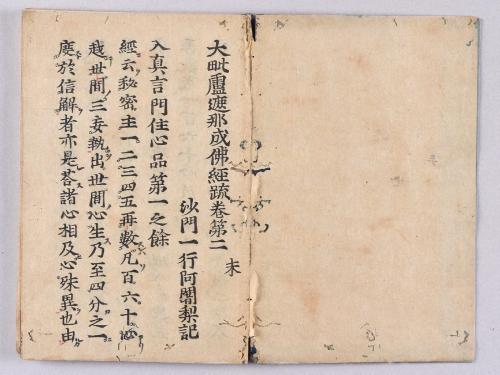 大毗盧遮那成佛經疏卷第二 末
沙門一行阿闍梨記
入真言門住心品第一之餘
經云秘密主一二三四五再數凡百六十心
越世間三妄執出世間心生乃至四分之一
度於信解者亦是荅諸心相及心殊異也由